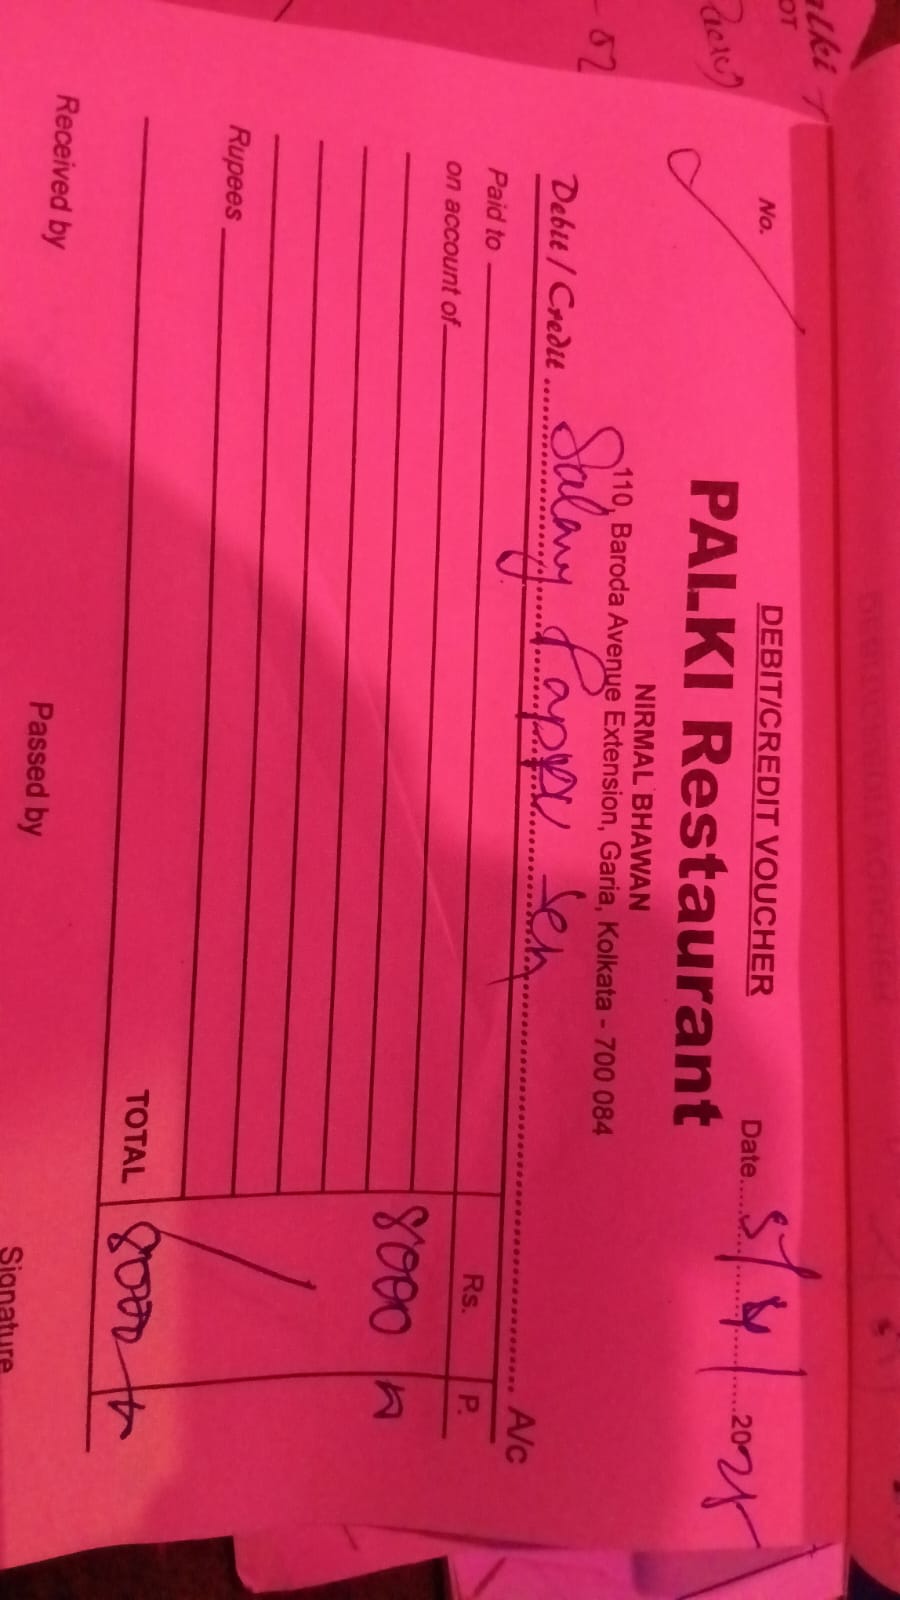 DEBIT/CREDIT VOUCHER
No.
Date
PALKI Restaurant
NIRMAL BHAWAN
110, Baroda Avenue Extension, Garia, Kolkata - 700 084
Debit / Credit Salary Sen A/c
Paid to
Rs. P.
on account of
8000
Rupees
TOTAL 8000
Received by Passed by Signature